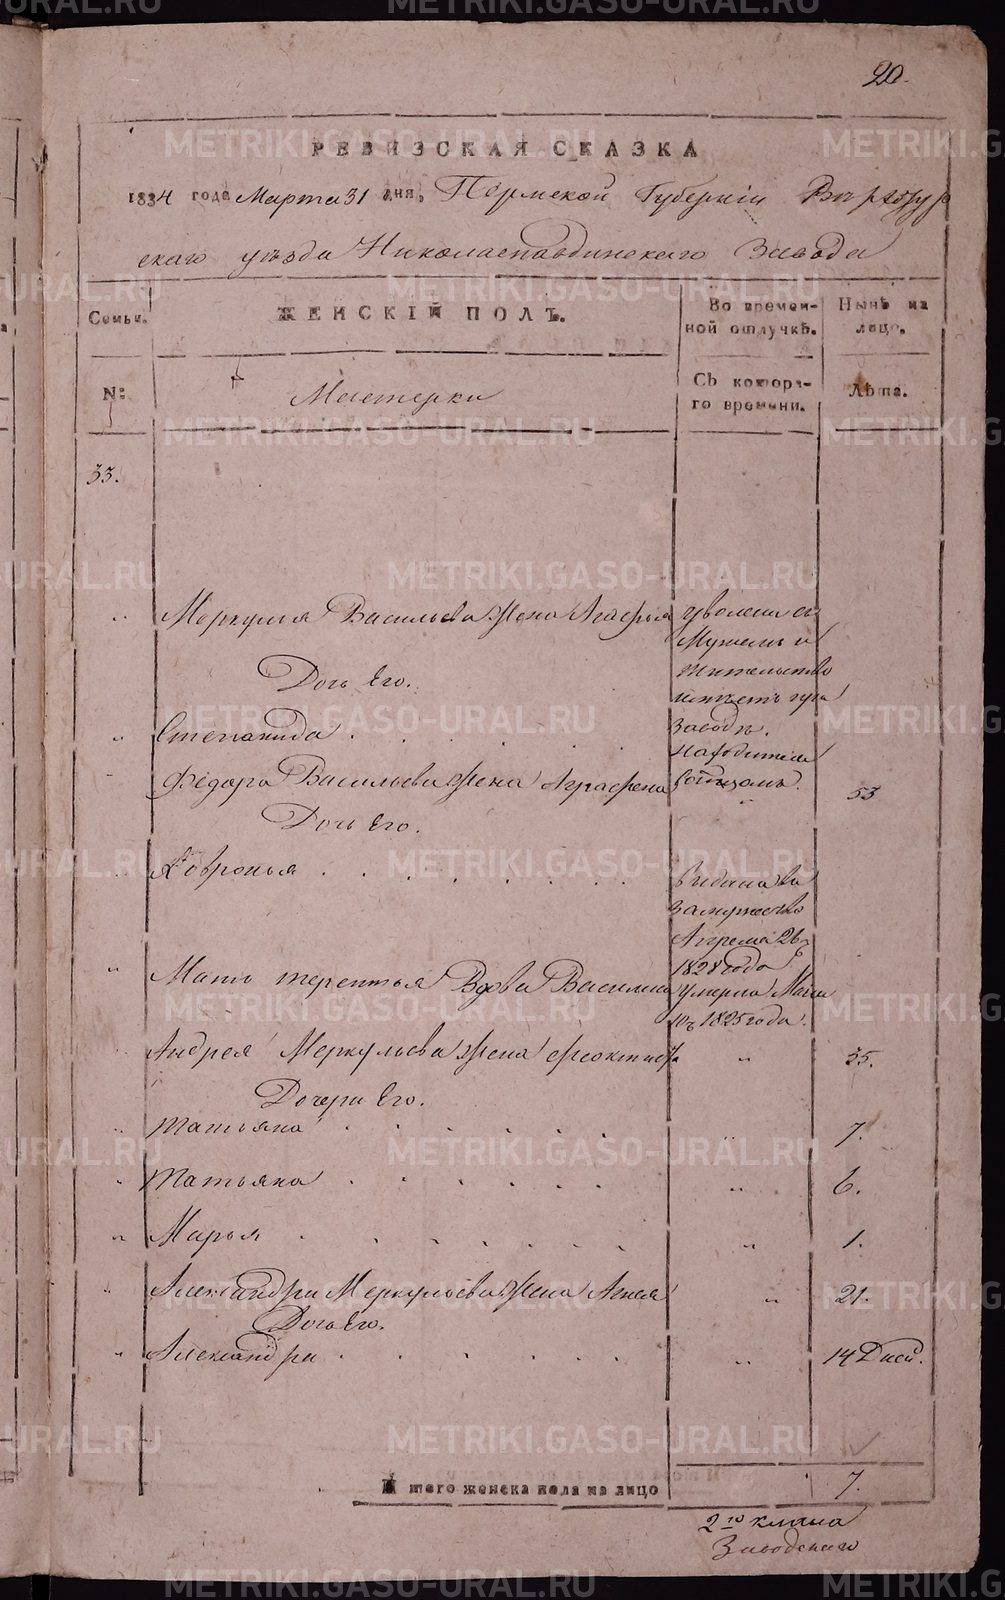 20.
РЕВИЗСКАЯ СКАЗКА
1834 года Марта 31 дня, Пермской Губерніи Верхотур
скаго уезда Николаепавдинскаго Завода
Семьи.
ЖЕНСКІЙ ПОЛЪ.
Во времен-
ной отлучкѣ.
Нынѣ на
лицо.
№:
Мастерки
Съ котора-
го времени.
Лѣта.
33.
Меркулья Васильева Жена Агафья
уволена съ
Мужемъ и
Жительство
имѣетъ
заводѣ.
Дочь Его.
Степанида
находится
Федора Васильева Жена Аграфена
53
Дочь Его.
Ховронья
выдана въ
замужество
Апреля 26
1828 года
Мать терентья Вдова Василиса
умерла Маія
въ 1825 года.
Андрея Меркульева Жена феоктиста
35.
Дочери Его.
Татьяна
7.
Татьяна
6.
Марья
1.
Александра Меркульева Жена Агнея
21.
Дочь Его.
Александра
14 Дней.
Итого женска пола на лицо
7.
2го класса
Заводскаго
METRIKI.GASO-URAL.RU